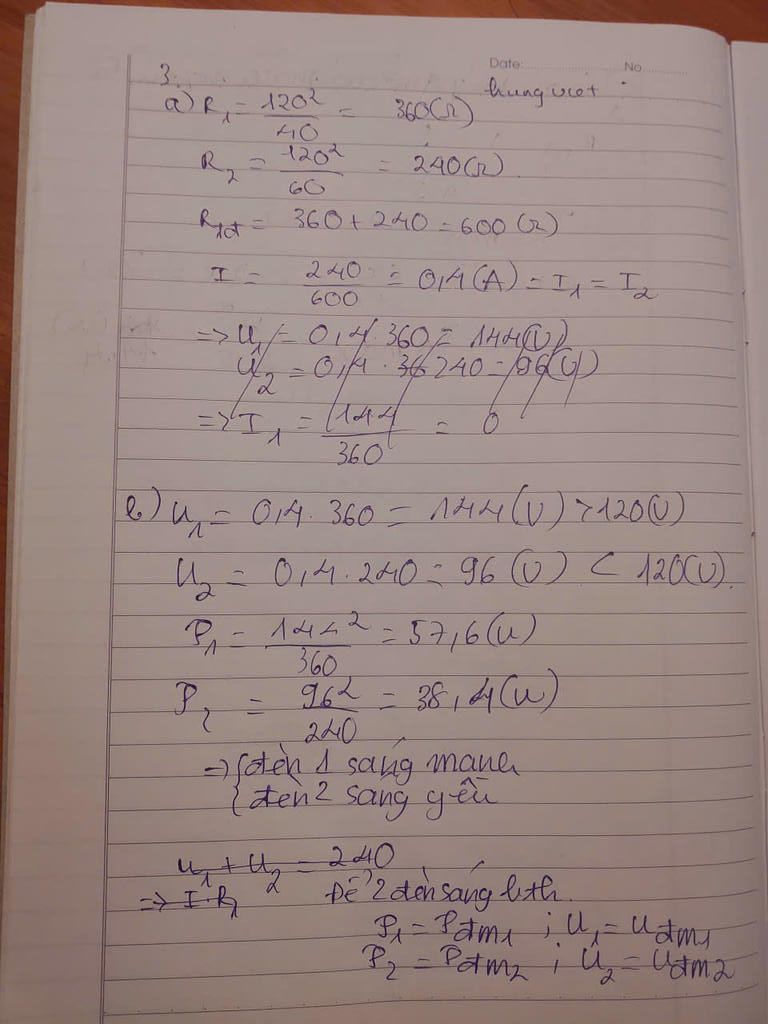 Date: No
3.
hungviet
a) R₁ = 120²/40 = 360(Ω)
R₂ = 120²/60 = 240(Ω).
R₁₂ = 360 + 240 = 600(Ω)
I = 240/600 = 0,4(A) = I₁ = I₂
=> U₁ = 0,4 . 360 = 144(V)
U₂ = 0,4 . 36 240 = 96(V)
=> I₁ = 144/360 = 0
b) U₁ = 0,4 . 360 = 144(V) > 120(V)
U₂ = 0,4 . 240 = 96 (V) < 120(V).
P₁ = 144²/360 = 57,6(W)
P₂ = 96²/240 = 38,4(W)
=> { đèn 1 sáng mạnh
{ đèn 2 sáng yếu
U₁ + U₂ = 240
=> I.R₁ Để 2 đèn sáng bth.
P₁ = Pđm1 ; U₁ = Uđm1
P₂ = Pđm2 ; U₂ = Uđm2